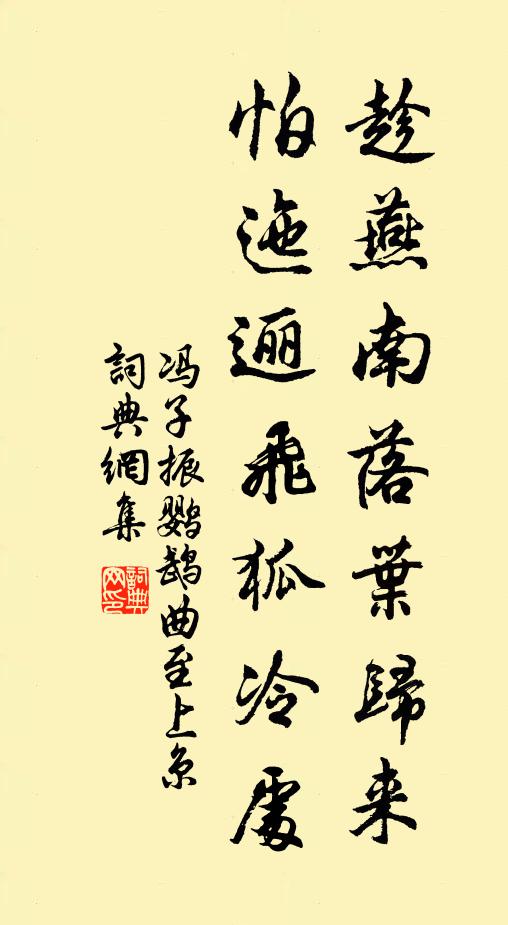 趁燕南落葉歸来
怕迤逦飛狐冷處
冯子振鹦鹉曲至上京
詞典網集
詞典网印